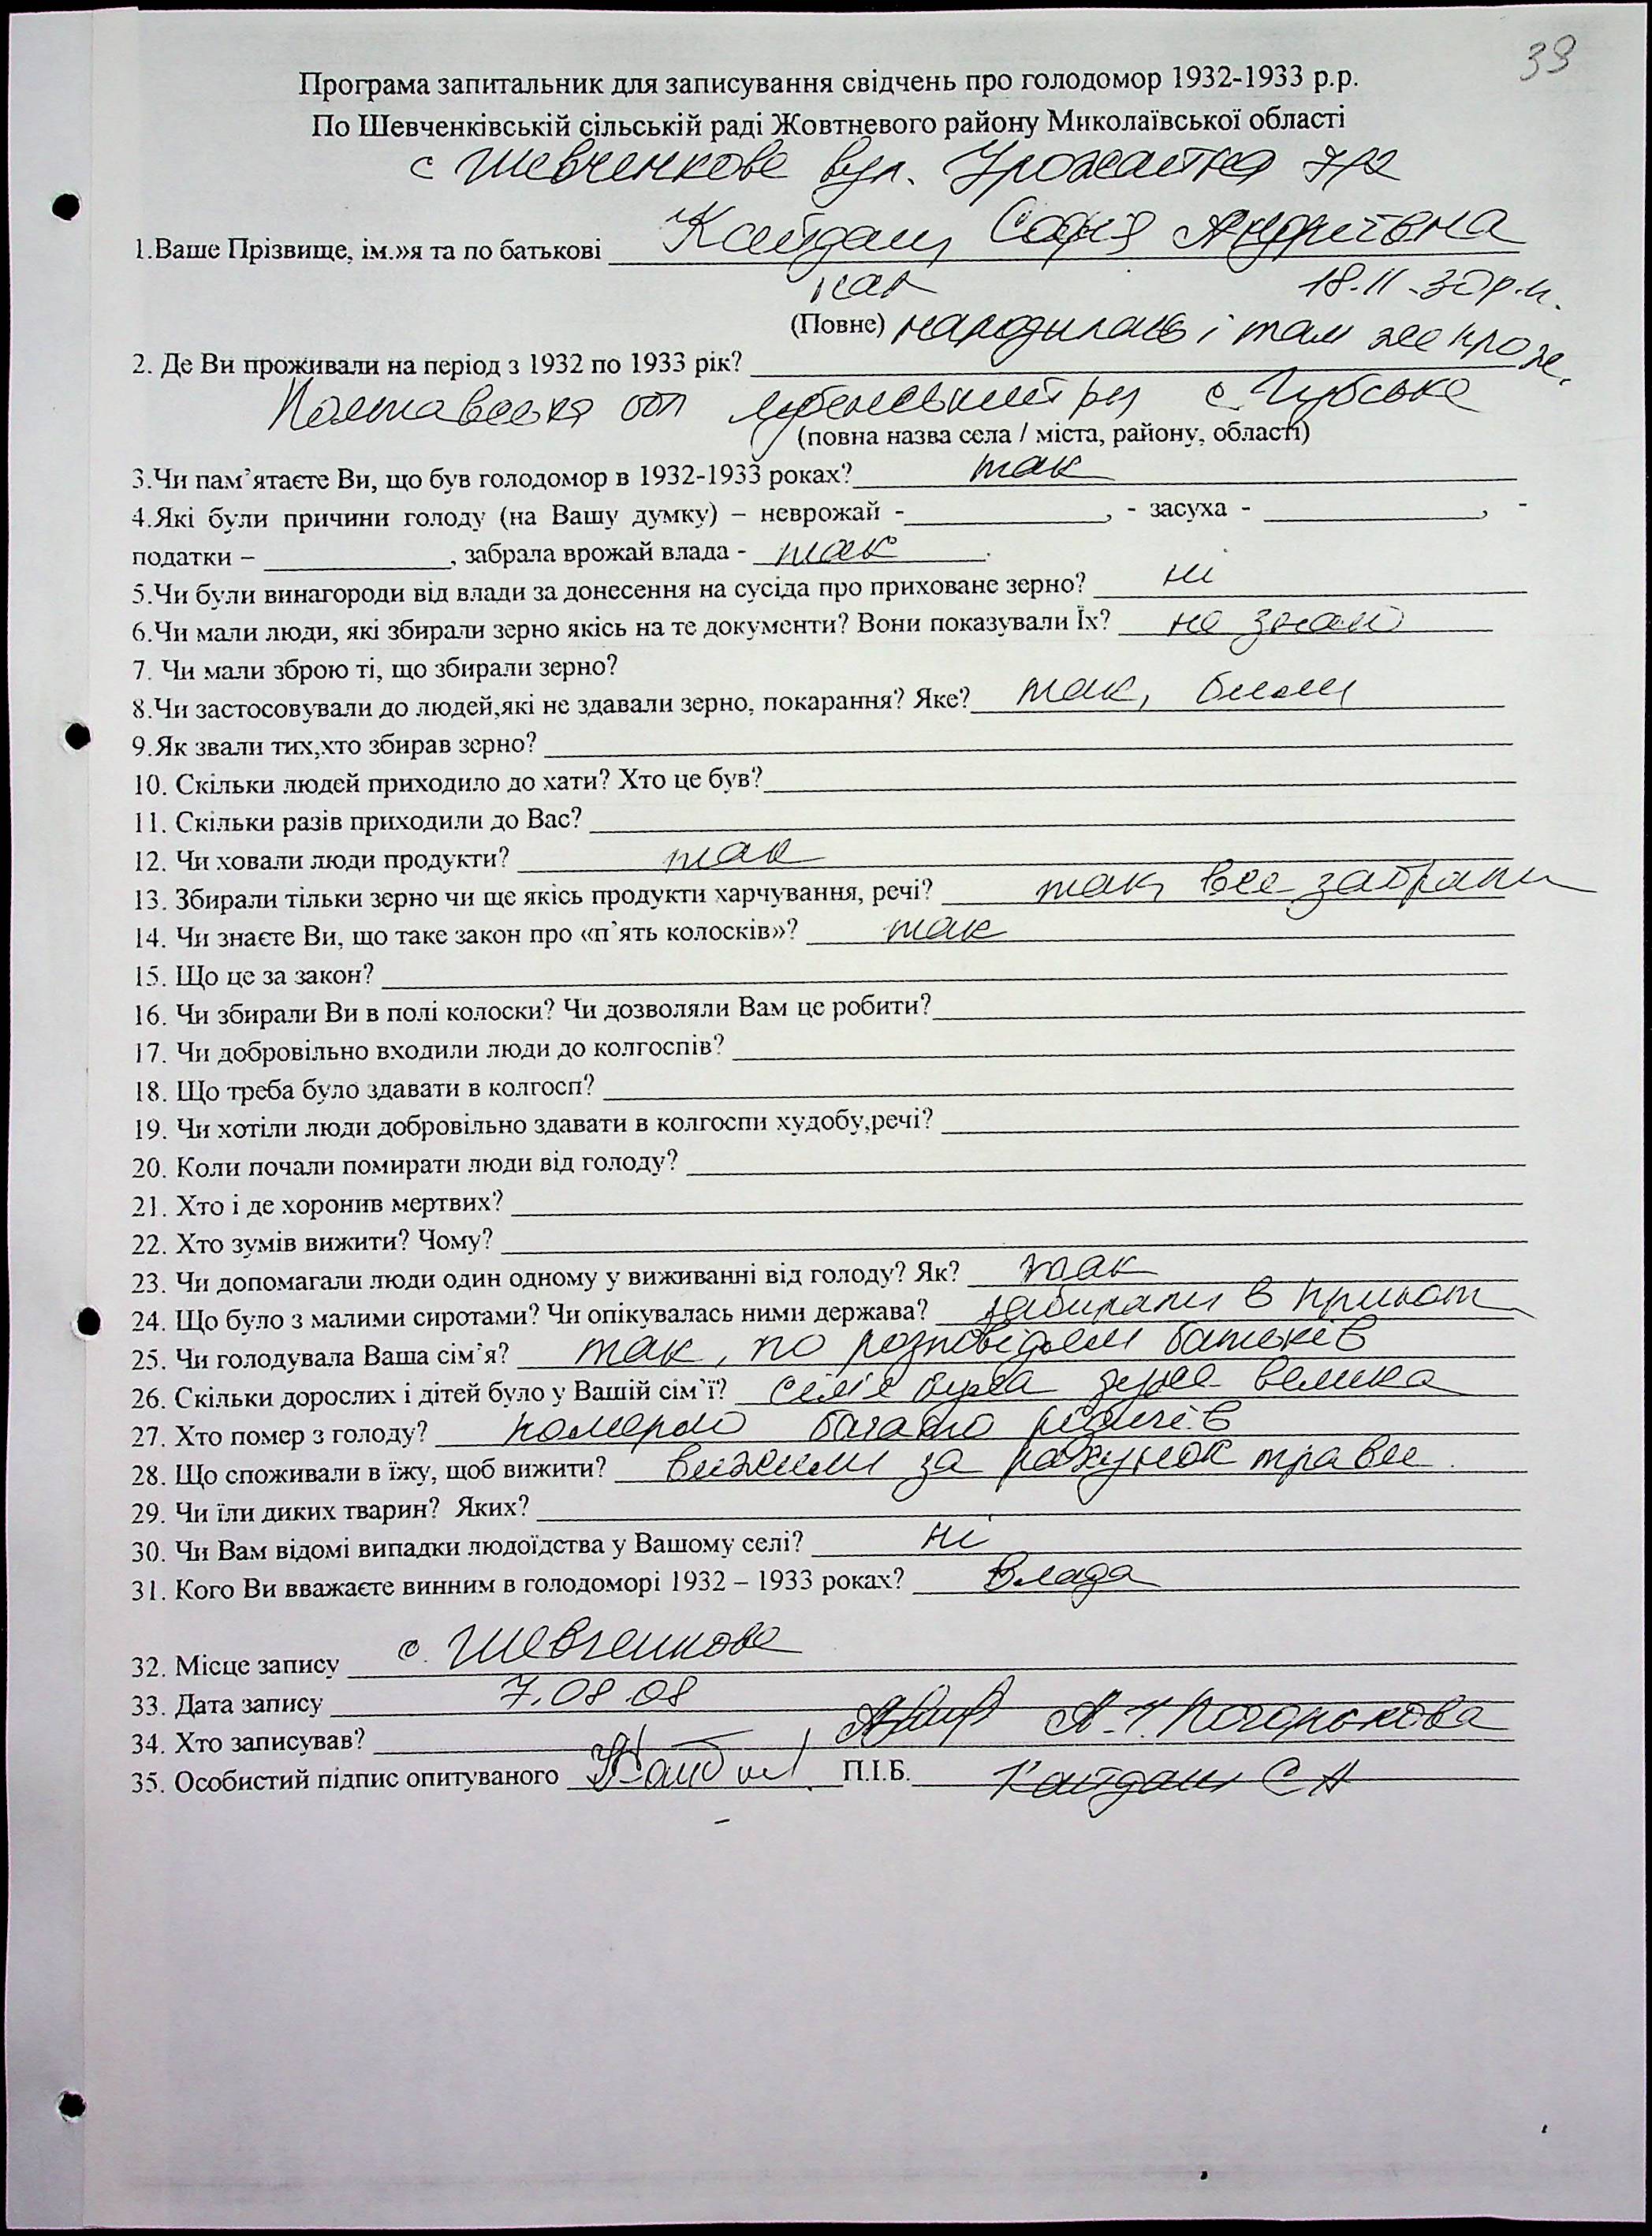 39
Програма запитальник для записування свідчень про голодомор 1932-1933 р.р.
По Шевченківській сільській раді Жовтневого району Миколаївської області
с Шевченкове вул. Урожайна 7/2
1.Ваше Прізвище, ім.»я та по батькові Кайдаш Софія Андріївна
18.11.30р.н.
(Повне) народилась і там же прож.
2. Де Ви проживали на період з 1932 по 1933 рік?
Полтавська обл Лубенський рн с.
(повна назва села / міста, району, області)
3.Чи пам’ятаєте Ви, що був голодомор в 1932-1933 роках? так
4.Які були причини голоду (на Вашу думку) – неврожай - ____, - засуха - ____, -
податки – ____, забрала врожай влада - так.
5.Чи були винагороди від влади за донесення на сусіда про приховане зерно? ні
6.Чи мали люди, які збирали зерно якісь на те документи? Вони показували Їх? не знаю
7. Чи мали зброю ті, що збирали зерно?
8.Чи застосовували до людей,які не здавали зерно, покарання? Яке? так, били
9.Як звали тих,хто збирав зерно?
10. Скільки людей приходило до хати? Хто це був?
11. Скільки разів приходили до Вас?
12. Чи ховали люди продукти? так
13. Збирали тільки зерно чи ще якісь продукти харчування, речі? так, все забрали
14. Чи знаєте Ви, що таке закон про «п’ять колосків»? так
15. Що це за закон?
16. Чи збирали Ви в полі колоски? Чи дозволяли Вам це робити?
17. Чи добровільно входили люди до колгоспів?
18. Що треба було здавати в колгосп?
19. Чи хотіли люди добровільно здавати в колгоспи худобу,речі?
20. Коли почали помирати люди від голоду?
21. Хто і де хоронив мертвих?
22. Хто зумів вижити? Чому?
23. Чи допомагали люди один одному у виживанні від голоду? Як? так
24. Що було з малими сиротами? Чи опікувалась ними держава? забирали в приют
25. Чи голодувала Ваша сім’я? так, по розповідям батьків
26. Скільки дорослих і дітей було у Вашій сім’ї? сімя була дуже велика
27. Хто помер з голоду? померло багато родичів
28. Що споживали в їжу, щоб вижити? вижили за рахунок трави.
29. Чи їли диких тварин? Яких?
30. Чи Вам відомі випадки людоїдства у Вашому селі? ні
31. Кого Ви вважаєте винним в голодоморі 1932 – 1933 роках? Влада
32. Місце запису с. Шевченкове
33. Дата запису 7.08.08
34. Хто записував?
35. Особистий підпис опитуваного ____ П.І.Б. Кайдаш С А